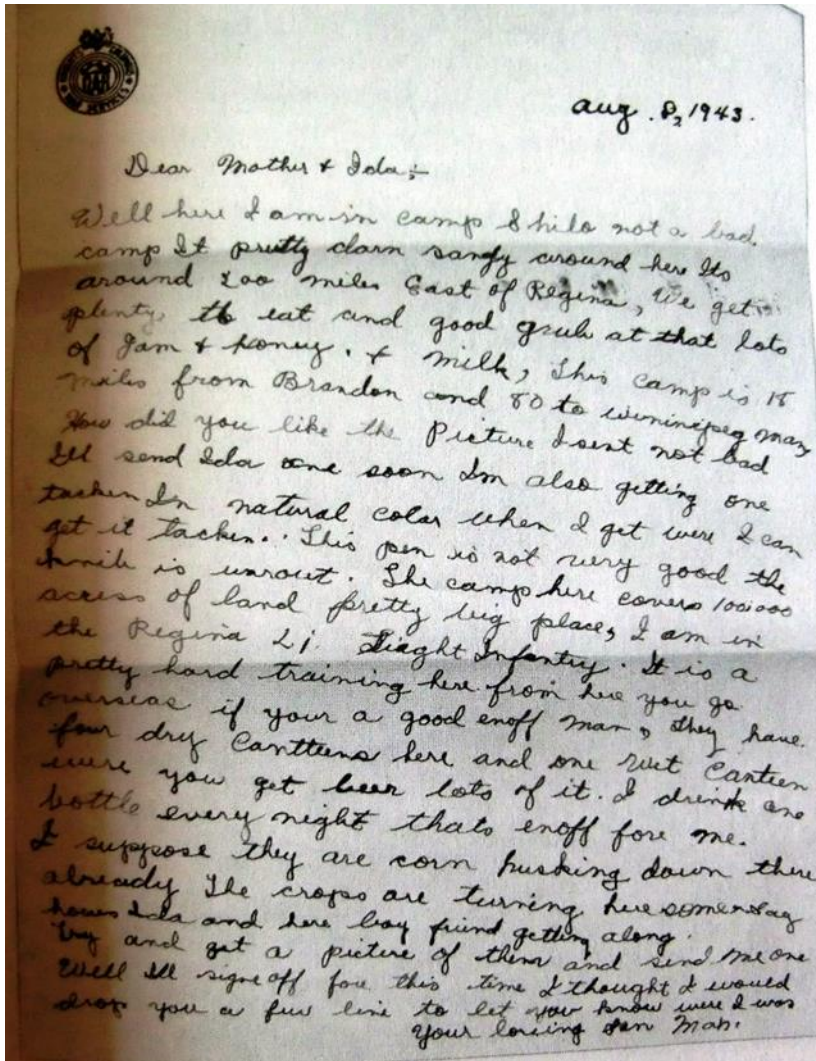 KNIGHTS OF COLUMBUS
WAR SERVICES
Aug. 8, 1943.
Dear Mother & Ida;-
Well here I am in camp Shilo not a bad.
camp It pretty darn sandy around here Its
around 200 miles East of Regina, We get
plenty to eat and good grub at that lots
of Jam & honey. & milk, This camp is 18
miles from Brandon and 80 to winnipeg man,
How did you like the Picture I sent not bad
Ill send Ida one soon Im also getting one
tacken In natural color when I get were I can
get it tacken. This pen is not very good the
is . The camp here covers 100,000
acress of land pretty big place, I am in
the Regina Infantry. It is a
pretty hard training here from here you go
overseas if your a good enoff man, They have
four dry Cantteens here and one wet Canteen
were you get beer lots of it. I drink one
bottle every night thats enoff fore me.
I suppose they are corn husking down there
already The crops are turning here
hows Ida and here boy friend getting along.
try and get a picture of them and send me one
Well Ill signe off fore this time I thought I would
drop you a few line to let you know were I was
Your loving son